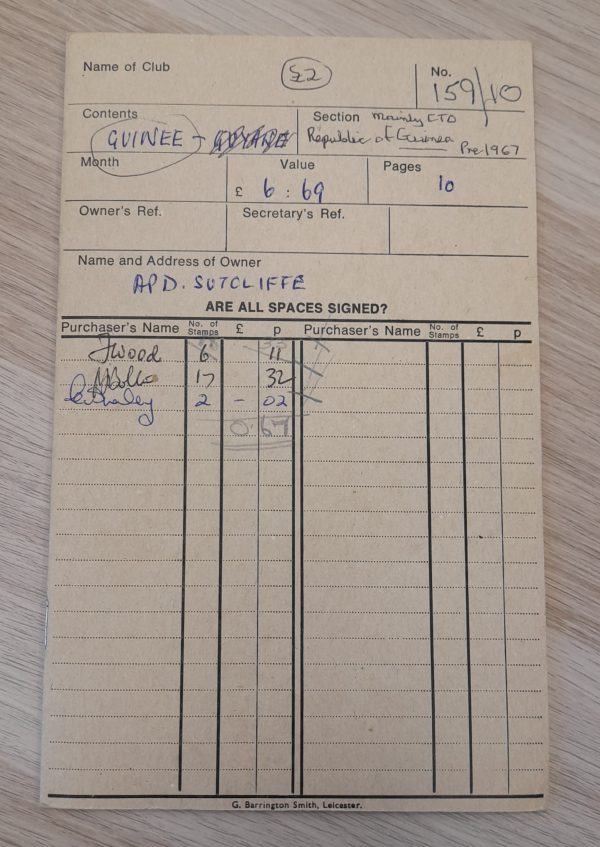 Name of Club
£2
No. 159/10
Contents
GUINEE -
Section Mainly CTO
Republic of Guinea Pre 1967
Month
Value
£ 6 : 69
Pages
10
Owner's Ref.
Secretary's Ref.
Name and Address of Owner
A P D. SUTCLIFFE
ARE ALL SPACES SIGNED?
Purchaser's Name No. of Stamps £ p Purchaser's Name No. of Stamps £ p
Jwood 6 11
17 32
2 - 02
0.67
G. Barrington Smith, Leicester.